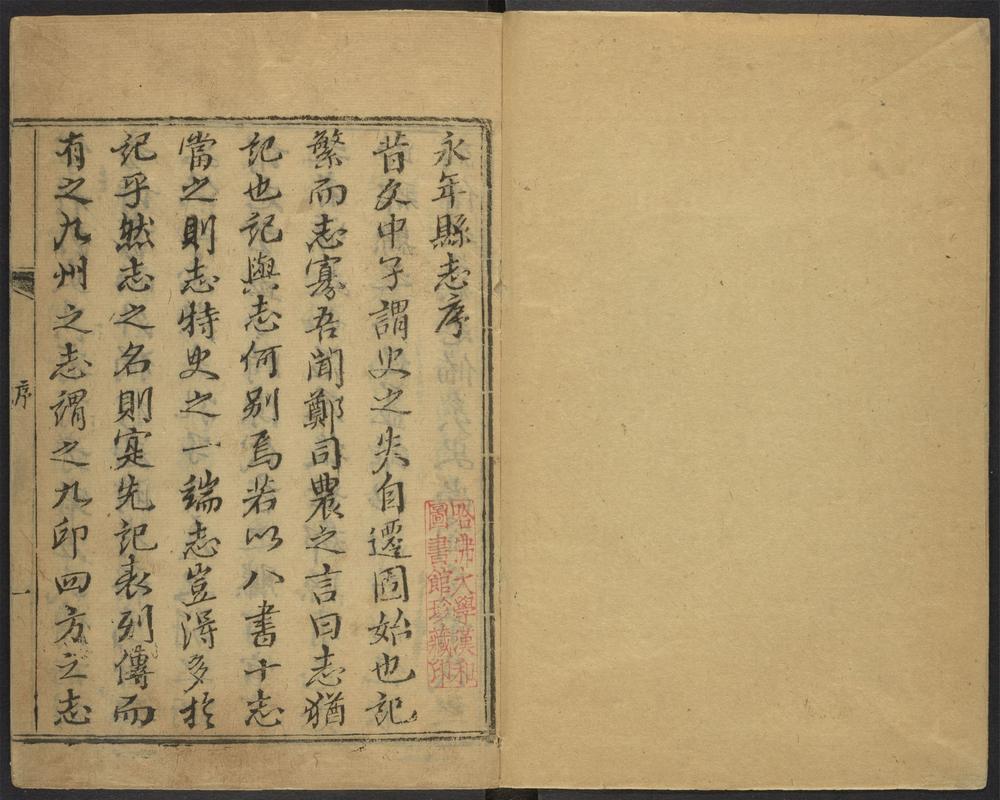 永年縣志序
昔文中子謂史之失自遷固始也記
繁而志寡吾聞鄭司農之言曰志猶
記也記與志何别焉若以八書十志
當之則志特史之一端志豈得多於
記乎然志之名則寔先記表列傳而
有之九州之志謂之九印四方之志
序
一
哈佛大學漢和
圖書館珍藏印